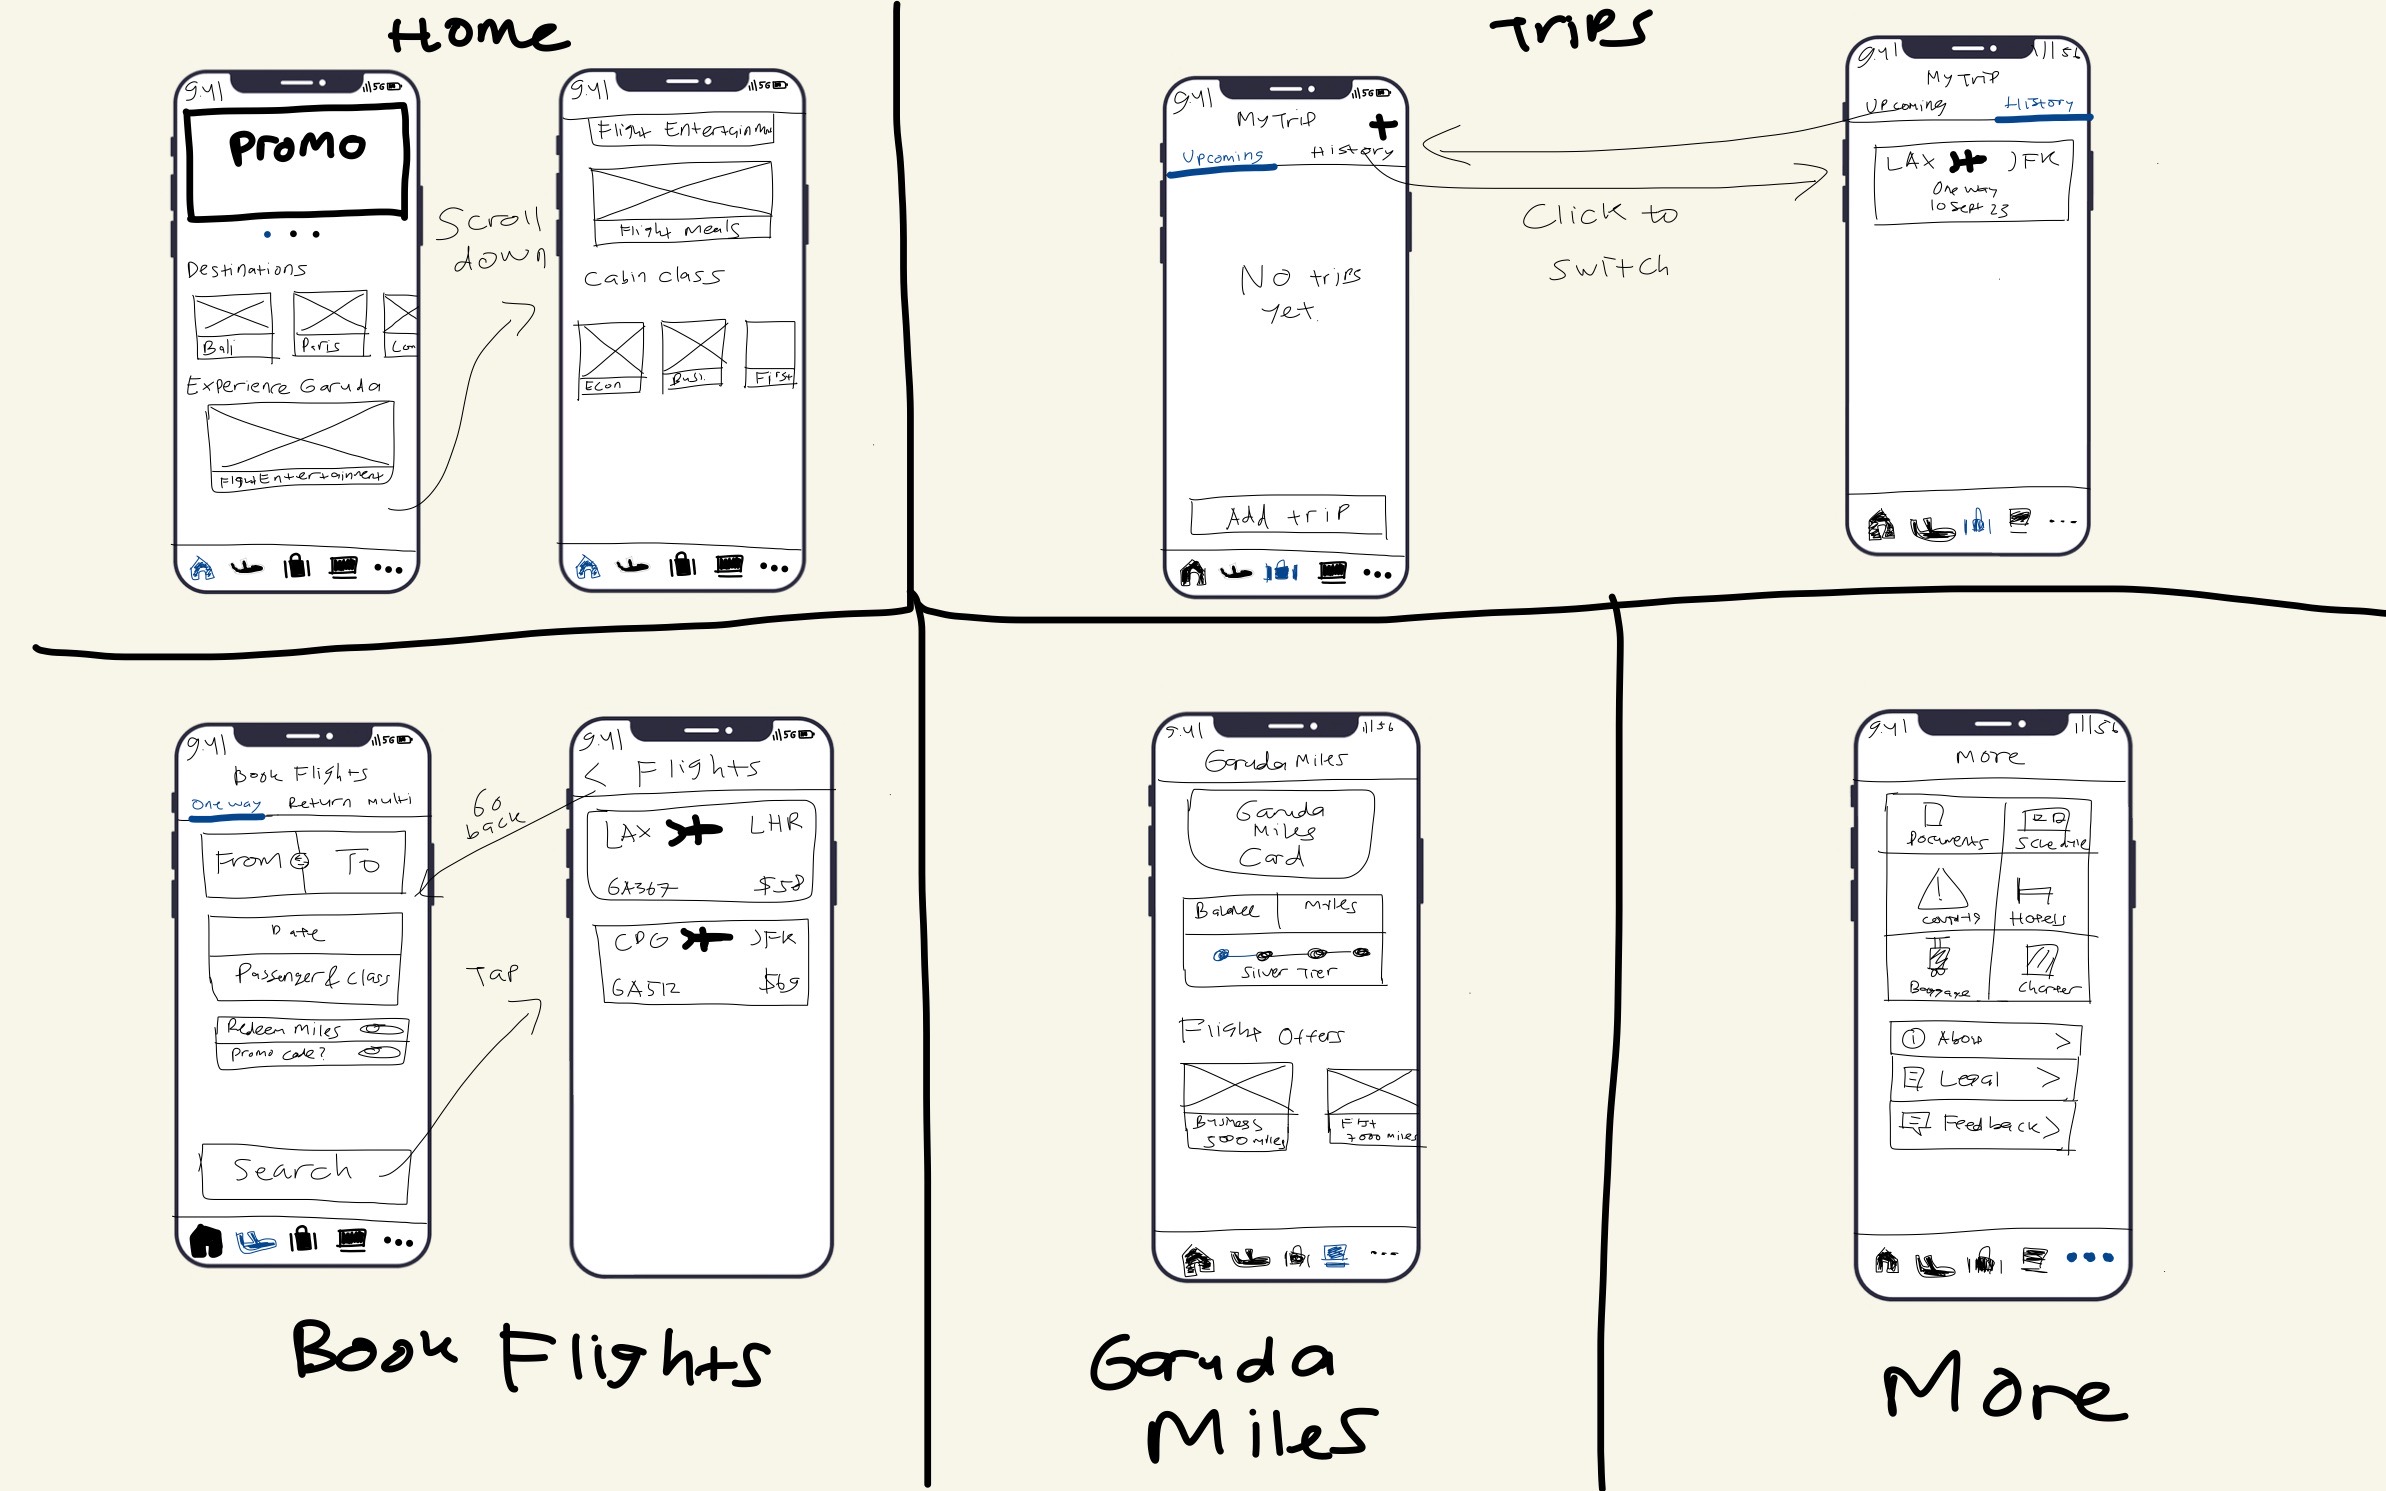 Home
9:41
5G
Promo
Destinations
Bali
Paris
Lon
Experience Garuda
Flight Entertainment
Scroll
down
9:41
5G
Flight Entertainme
Flight Meals
Cabin class
Econ
Busi.
First
Trips
9:41
5G
My Trip
+
Upcoming
History
No trips
yet.
Add trip
Click to
switch
9:41
5G
My Trip
Upcoming
History
LAX
JFK
One way
10 Sept 23
9:41
5G
Book Flights
One way
Return
Multi
From
To
Date
Passenger & Class
Redeem Miles
Promo code?
Search
Go
back
Tap
9:41
5G
< Flights
LAX
LHR
GA367
$58
CDG
JFK
GA512
$69
Book Flights
9:41
5G
Garuda Miles
Garuda
Miles
Card
Balance
Miles
Silver Tier
Flight Offers
Business
5000 miles
First
7000 miles
Garuda
Miles
9:41
5G
More
Documents
Schedule
Covid-19
Hotels
Baggage
Charter
About >
Legal >
Feedback >
More